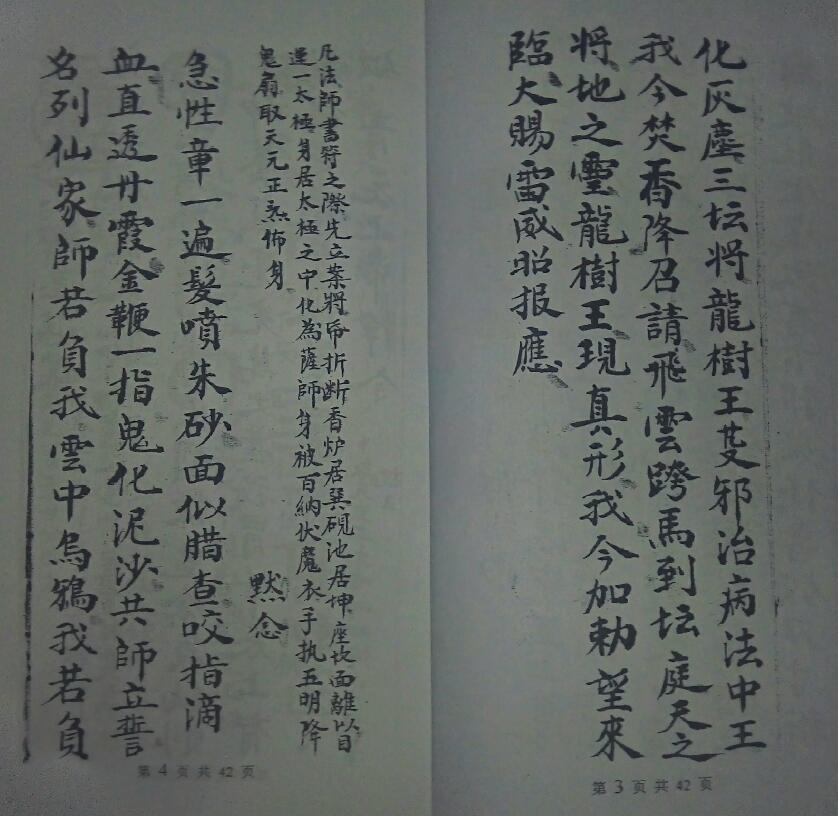 化灰塵三坛将龍樹王芟邪治病法中王
我今焚香降召請飛雲跨馬到坛庭天之
将地之霊龍樹王現真形我今加勅望來
臨大賜雷威昭报應
第 3 页 共 42 页
凡法師書符之際先立案将帋折断香炉居巽硯池居坤座坎面離以目
運一太極身居太極之中化為薩師身被百納伏魔衣手执五明降
鬼扇取天元正炁佈身 默念
急性章一遍髮噴朱砂面似腊查咬指滴
血直透丹霞金鞭一指鬼化泥沙共師立誓
名列仙家師若負我雲中烏鴉我若負
第 4 页 共 42 页